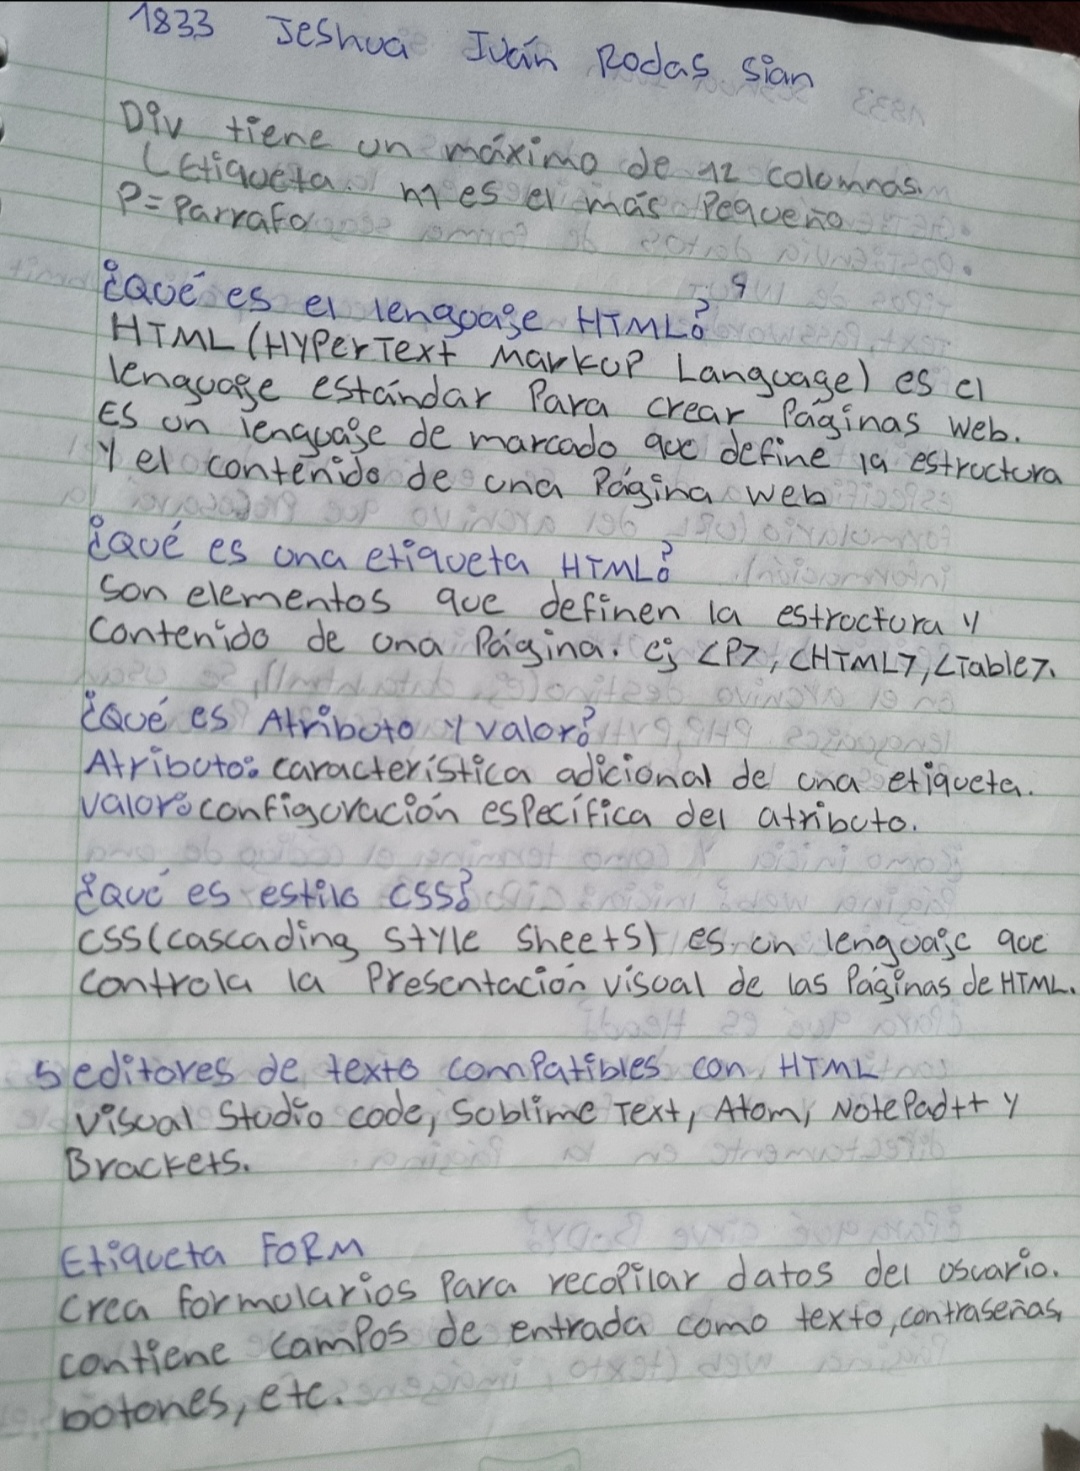 1833 Jeshua Iván Rodas Sian
Div tiene un máximo de 12 colomnas.
(Etiqueta. h1 es el más Pequeño
P=Parrafo
¿Qué es el lenguaje HTML?
HTML (HyperText Markup Language) es el
lenguaje estándar Para crear Páginas web.
Es un lenguaje de marcado que define la estructura
Y el contenido de una Página web
¿Qué es una etiqueta HTML?
Son elementos que definen la estructura y
contenido de una Página. ej <P>, <HTML>, <Table>.
¿Qué es Atributo y valor?
Atributo: característica adicional de una etiqueta.
Valor: configuración específica del atributo.
¿Qué es estilo CSS?
CSS (cascading Style Sheets) es un lenguaje que
controla la Presentación visual de las Páginas de HTML.
5 editores de texto compatibles con HTML
Visual Studio code, Sublime Text, Atom, NotePad++ y
Brackets.
Etiqueta FORM
Crea formularios Para recopilar datos del usuario.
contiene campos de entrada como texto, contraseñas,
botones, etc.